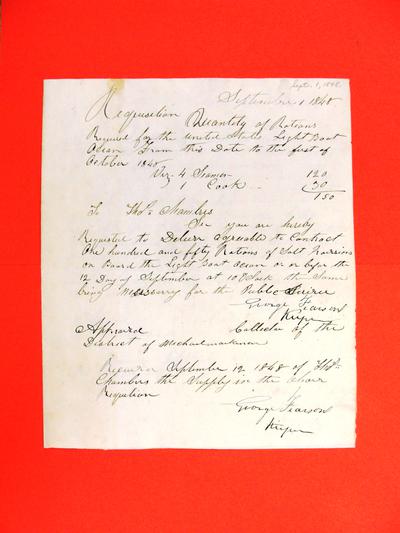 Sept. 1, 1848
September 1 1848
Requisition Quantity of Rations
Required for the United States Light Boat
Ocean From this Date to the first of
October 1848
Viz 4 Seamen 120
1 Cook 30
150
To Thos Chambers
Sir you are hereby
Requested to Deliver agreeable to Contract
One hundred and fifty Rations of Salt
on Board the Light Boat Ocean on or before the
12 Day of September at 10 O'Clock the Same
being Necessary for the Public Service
George Pearson
Keeper
Approved Collector of the
District of
Received September 12 1848 of Thos
Chambers the Supply in the above
Requetion
George Pearson
Keeper